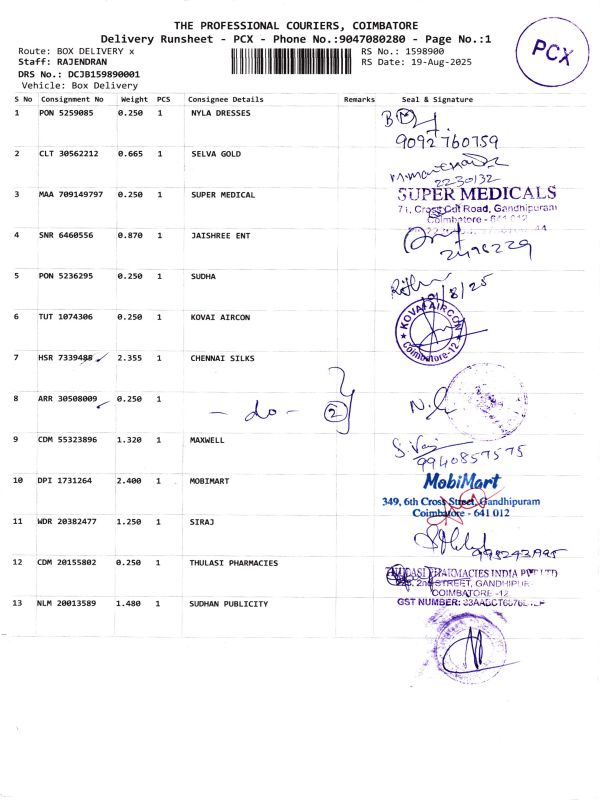 THE PROFESSIONAL COURIERS, COIMBATORE
Delivery Runsheet - PCX - Phone No.:9047080280 - Page No.:1
Route: BOX DELIVERY x RS No.: 1598900
Staff: RAJENDRAN RS Date: 19-Aug-2025
DRS No.: DCJB159890001
Vehicle: Box Delivery
PCX
S No Consignment No Weight PCS Consignee Details Remarks Seal & Signature
1 PON 5259085 0.250 1 NYLA DRESSES
9092760759
2 CLT 30562212 0.665 1 SELVA GOLD
2230132
3 MAA 709149797 0.250 1 SUPER MEDICAL
SUPER MEDICALS
71, Cross Cut Road, Gandhipuram
Coimbatore - 641 012
4 SNR 6460556 0.870 1 JAISHREE ENT
2496229
5 PON 5236295 0.250 1 SUDHA
/8/25
6 TUT 1074306 0.250 1 KOVAI AIRCON
KOVAI AIRCON
Coimbatore-12
7 HSR 7339488 2.355 1 CHENNAI SILKS
8 ARR 30508009 0.250 1
- do - 2
9 CDM 55323896 1.320 1 MAXWELL
9940857575
10 DPI 1731264 2.400 1 MOBIMART
MobiMart
349, 6th Cross Street, Gandhipuram
Coimbatore - 641 012
11 WDR 20382477 1.250 1 SIRAJ
12 CDM 20155802 0.250 1 THULASI PHARMACIES
THULASI PHARMACIES INDIA PVT LTD
2nd STREET, GANDHIPUR
COIMBATORE -12
GST NUMBER:
13 NLM 20013589 1.480 1 SUDHAN PUBLICITY